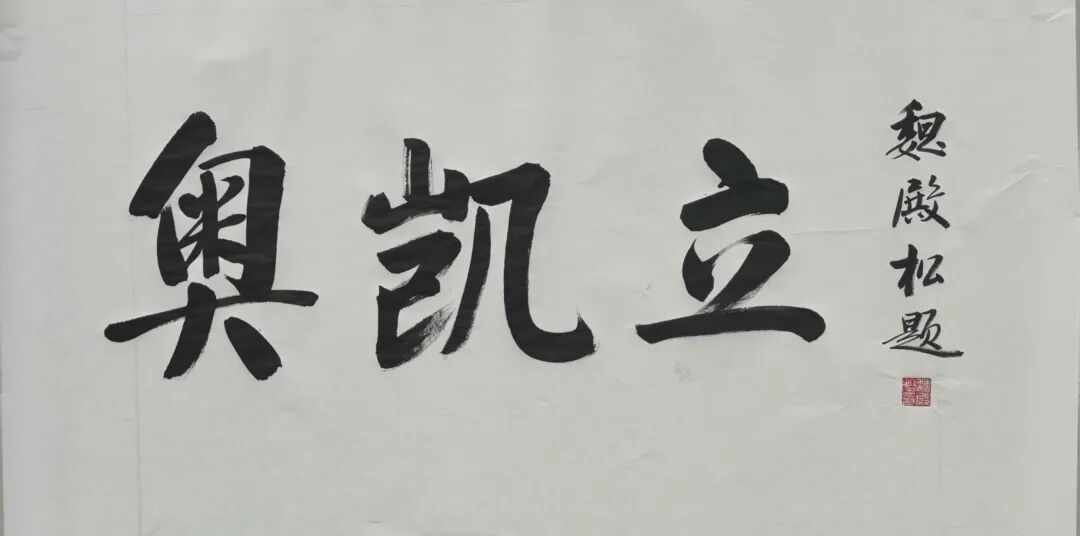 奥凯立
魏殿松题